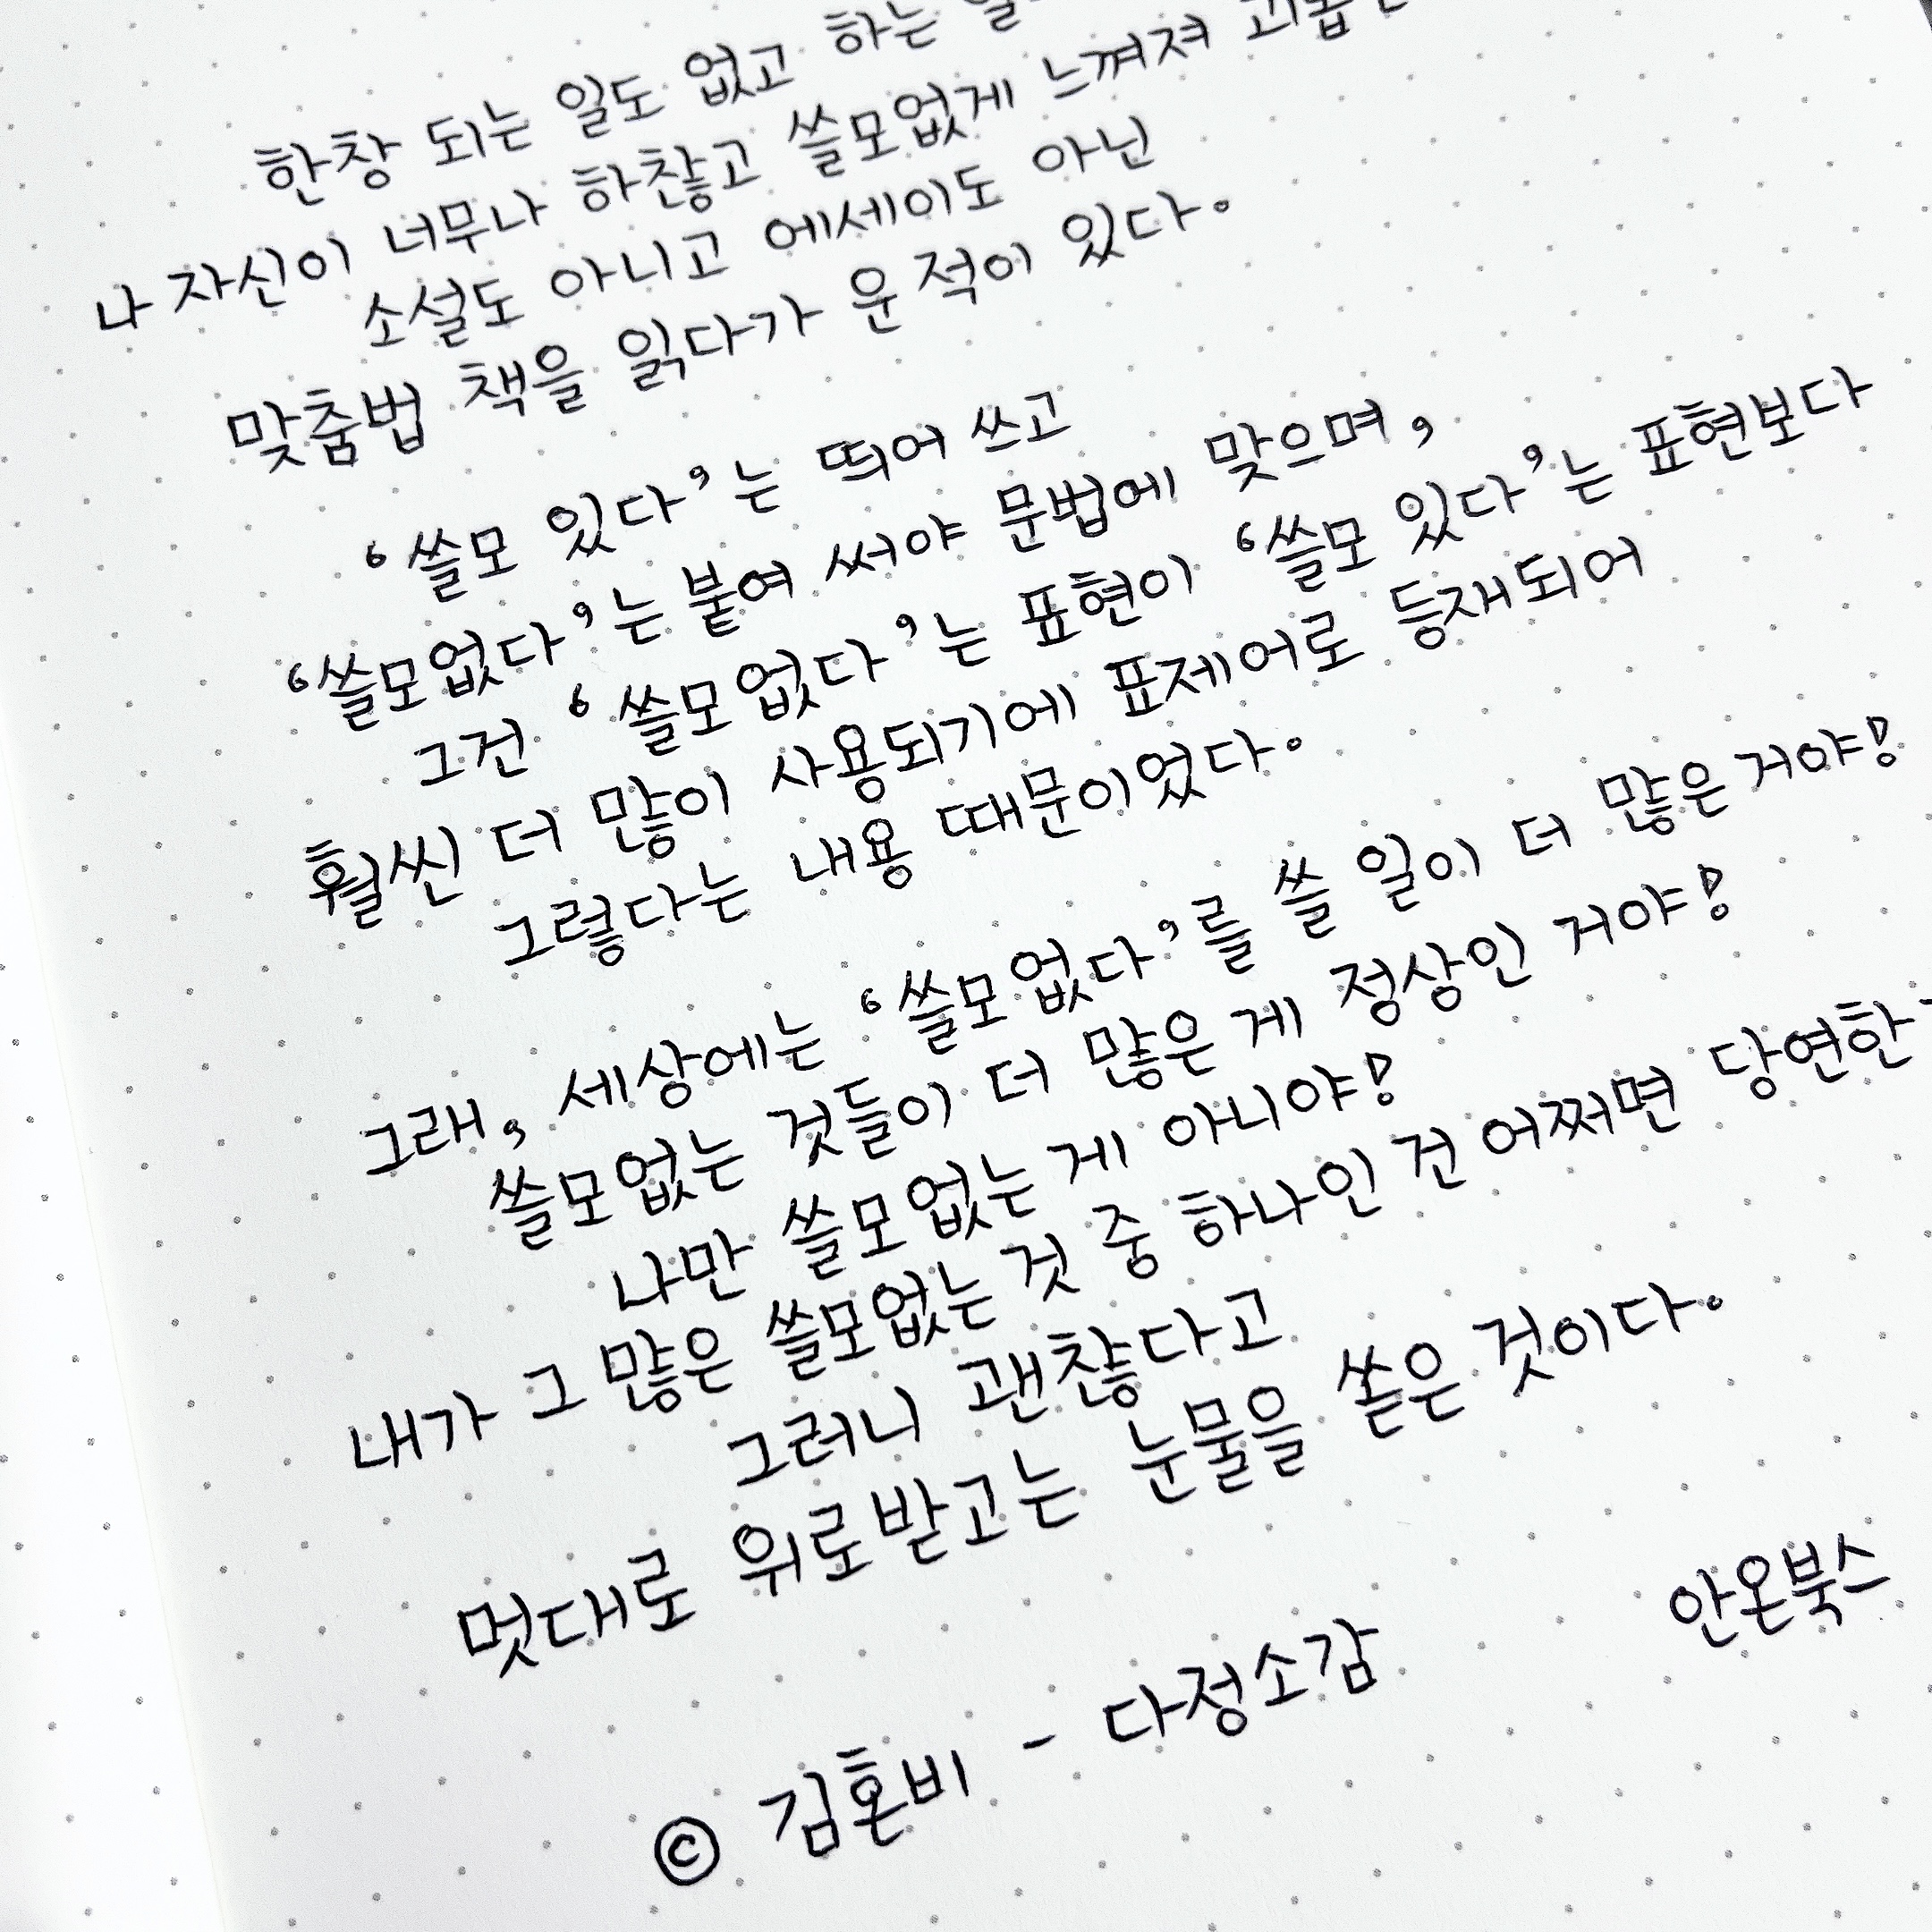 한창 되는 일도 없고 하는
나 자신이 너무나 하찮고 쓸모없게 느껴져
소설도 아니고 에세이도 아닌
맞춤법 책을 읽다가 운 적이 있다.
‘쓸모 있다’는 띄어 쓰고
‘쓸모없다’는 붙여 써야 문법에 맞으며,
그건 ‘쓸모없다’는 표현이 ‘쓸모 있다’는 표현보다
훨씬 더 많이 사용되기에 표제어로 등재되어
그렇다는 내용 때문이었다.
그래, 세상에는 ‘쓸모없다’를 쓸 일이 더 많은 거야!
쓸모없는 것들이 더 많은 게 정상인 거야!
나만 쓸모없는 게 아니야!
내가 그 많은 쓸모없는 것 중 하나인 건 어쩌면 당연한
그러니 괜찮다고
멋대로 위로받고는 눈물을 쏟은 것이다.
안온북스
© 김혼비 - 다정소감